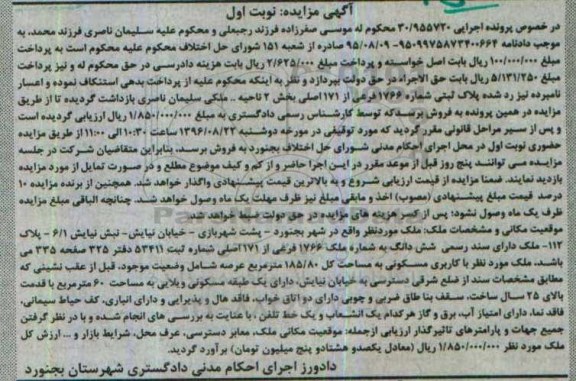 آگهی مزایده: نوبت اول
در خصوص پرونده اجرایی ۳۰/۹۵۵۷۳۰ محکوم له موسی صفرزاده فرزند رجبعلی و محکوم علیه سلیمان ناصری فرزند محمد، به
موجب دادنامه ۹۵۰۹۹۷۵۸۷۳۴۰۰۶۶۴-۹۵/۰۸/۰۹ صادره از شعبه ۱۵۱ شورای حل اختلاف محکوم علیه محکوم است به پرداخت
مبلغ ۱۰۰/۰۰۰/۰۰۰ ریال بابت اصل خواسته و پرداخت مبلغ ۲/۶۲۵/۰۰۰ ریال بابت هزینه دادرسی در حق محکوم له و نیز پرداخت
مبلغ ۵/۱۳۱/۲۵۰ ریال بابت حق الاجراء در حق دولت بپردازد و نظر به اینکه محکوم علیه از پرداخت بدهی استنکاف نموده و اعسار
نامبرده نیز رد شده پلاک ثبتی شماره ۱۷۶۶ فرعی از ۱۷۱ اصلی بخش ۲ ناحیه .. ملکی سلیمان ناصری بازداشت گردیده تا از طریق
مزایده در همین پرونده به فروش برسد که توسط کارشناس رسمی دادگستری به مبلغ ۱/۸۵۰/۰۰۰/۰۰۰ ریال ارزیابی گردیده است
و پس از سیر مراحل قانونی مقرر گردید که مورد توقیفی در مورخه دوشنبه ۱۳۹۶/۰۸/۲۲ ساعت ۱۰:۳۰ الی ۱۱:۰۰ از طریق مزایده
حضوری نوبت اول در محل اجرای احکام مدنی شورای حل اختلاف بجنورد به فروش برسد. بنابراین متقاضیان شرکت در جلسه
مزایده می توانند پنج روز قبل از موعد مقرر در این اجرا حاضر و از کم و کیف موضوع مطلع و در صورت تمایل از مورد مزایده
بازدید نمایند. ضمنا مزایده از قیمت ارزیابی شروع و به بالاترین قیمت پیشنهادی واگذار خواهد شد. همچنین از برنده مزایده ۱۰
درصد قیمت مبلغ پیشنهادی (مصوب) اخذ و مابقی مبلغ نیز ظرف مهلت یک ماه وصول خواهد شد. چنانچه الباقی مبلغ مزایده
ظرف یک ماه وصول نشود؛ پس از کسر هزینه های مزایده در حق دولت ضبط خواهد شد.
موقعیت مکانی و مشخصات ملک: ملک موردنظر واقع در شهر بجنورد - پشت شهربازی - خیابان نیایش- نبش نیایش ۶/۱ - پلاک
۱۱۲- ملک دارای سند رسمی شش دانگ به شماره ملک ۱۷۶۶ فرعی از ۱۷۱ اصلی شماره ثبت ۵۳۴۱۱ دفتر ۳۲۵ صفحه ۳۳۵ می
باشد. ملک مورد نظر با کاربری مسکونی به مساحت کل ۱۸۵/۸۰ مترمربع عرصه شامل وضعیت موجود، قبل از عقب نشینی که
مطابق مشخصات سند از ضلع شرقی دسترسی به خیابان نیایش، دارای یک طبقه مسکونی ویلایی به مساحت ۶۰ مترمربع با قدمت
بالای ۲۵ سال ساخت، سقف بنا طاق ضربی و چوبی دارای دو اتاق خواب، فاقد هال و پذیرایی و دارای انباری، کف حیاط سیمانی،
فاقد نما، دارای امتیاز آب، برق و گاز هرکدام یک انشعاب و یک خط تلفن ، با عنایت به بررسی های انجام شده و با در نظر گرفتن
جمیع جهات و پارامترهای تاثیرگذار ارزیابی ازجمله: موقعیت مکانی ملک، معابر دسترسی، عرف محل، شرایط بازار و ... ارزش کل
ملک مورد نظر ۱/۸۵۰/۰۰۰/۰۰۰ ریال (معادل یکصدو هشتادو پنج میلیون تومان) برآورد گردید.
دادورز اجرای احکام مدنی دادگستری شهرستان بجنورد